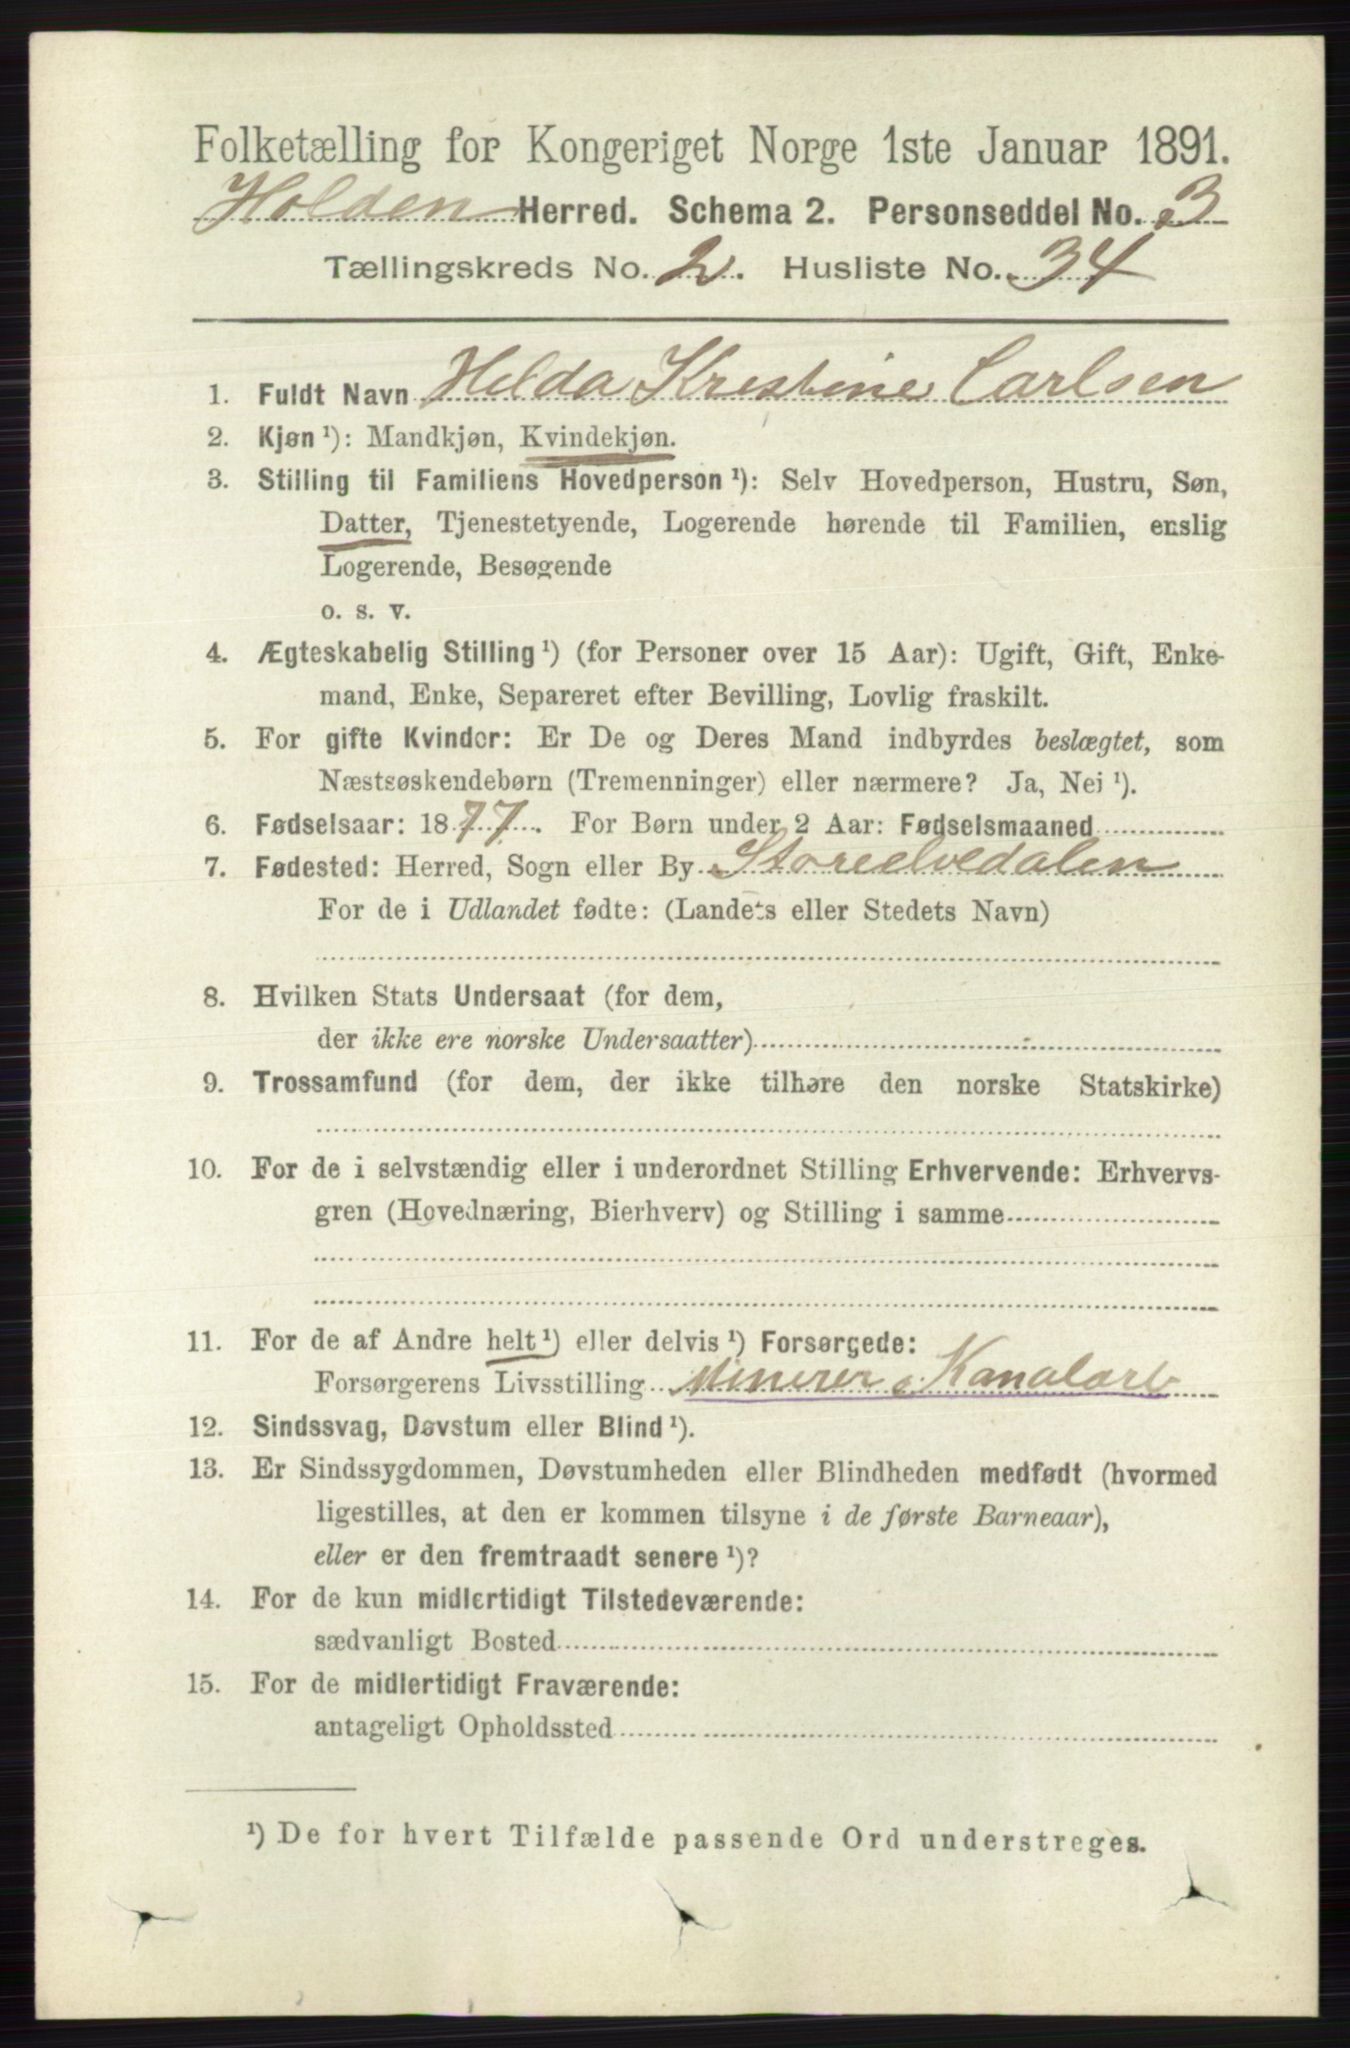 Folketælling for Kongeriget Norge 1ste Januar 1891.
Holden Herred. Schema 2. Personseddel No. 3
Tællingskreds No. 2. Husliste No. 34
1. Fuldt Navn Helda Kristine Carlsen
2. Kjøn ¹): Mandkjøn, Kvindekjøn.
3. Stilling til Familiens Hovedperson ¹): Selv Hovedperson, Hustru, Søn,
Datter, Tjenestetyende, Logerende hørende til Familien, enslig
Logerende, Besøgende
o. s. v.
4. Ægteskabelig Stilling ¹) (for Personer over 15 Aar): Ugift, Gift, Enke-
mand, Enke, Separeret efter Bevilling, Lovlig fraskilt.
5. For gifte Kvinder: Er De og Deres Mand indbyrdes beslægtet, som
Næstsøskendebørn (Tremenninger) eller nærmere? Ja, Nei ¹).
6. Fødselsaar: 1877. For Børn under 2 Aar: Fødselsmaaned
7. Fødested: Herred, Sogn eller By Storeelvedalen
For de i Udlandet fødte: (Landets eller Stedets Navn)
8. Hvilken Stats Undersaat (for dem,
der ikke ere norske Undersaatter)
9. Trossamfund (for dem, der ikke tilhøre den norske Statskirke)
10. For de i selvstændig eller i underordnet Stilling Erhvervende: Erhvervs-
gren (Hovednæring, Bierhverv) og Stilling i samme
11. For de af Andre helt ¹) eller delvis ¹) Forsørgede:
Forsørgerens Livsstilling Minerer, Kanalarb
12. Sindssvag, Døvstum eller Blind ¹).
13. Er Sindssygdommen, Døvstumheden eller Blindheden medfødt (hvormed
ligestilles, at den er kommen tilsyne i de første Barneaar),
eller er den fremtraadt senere ¹)?
14. For de kun midlertidigt Tilstedeværende:
sædvanligt Bosted
15. For de midlertidigt Fraværende:
antageligt Opholdssted
¹) De for hvert Tilfælde passende Ord understreges.